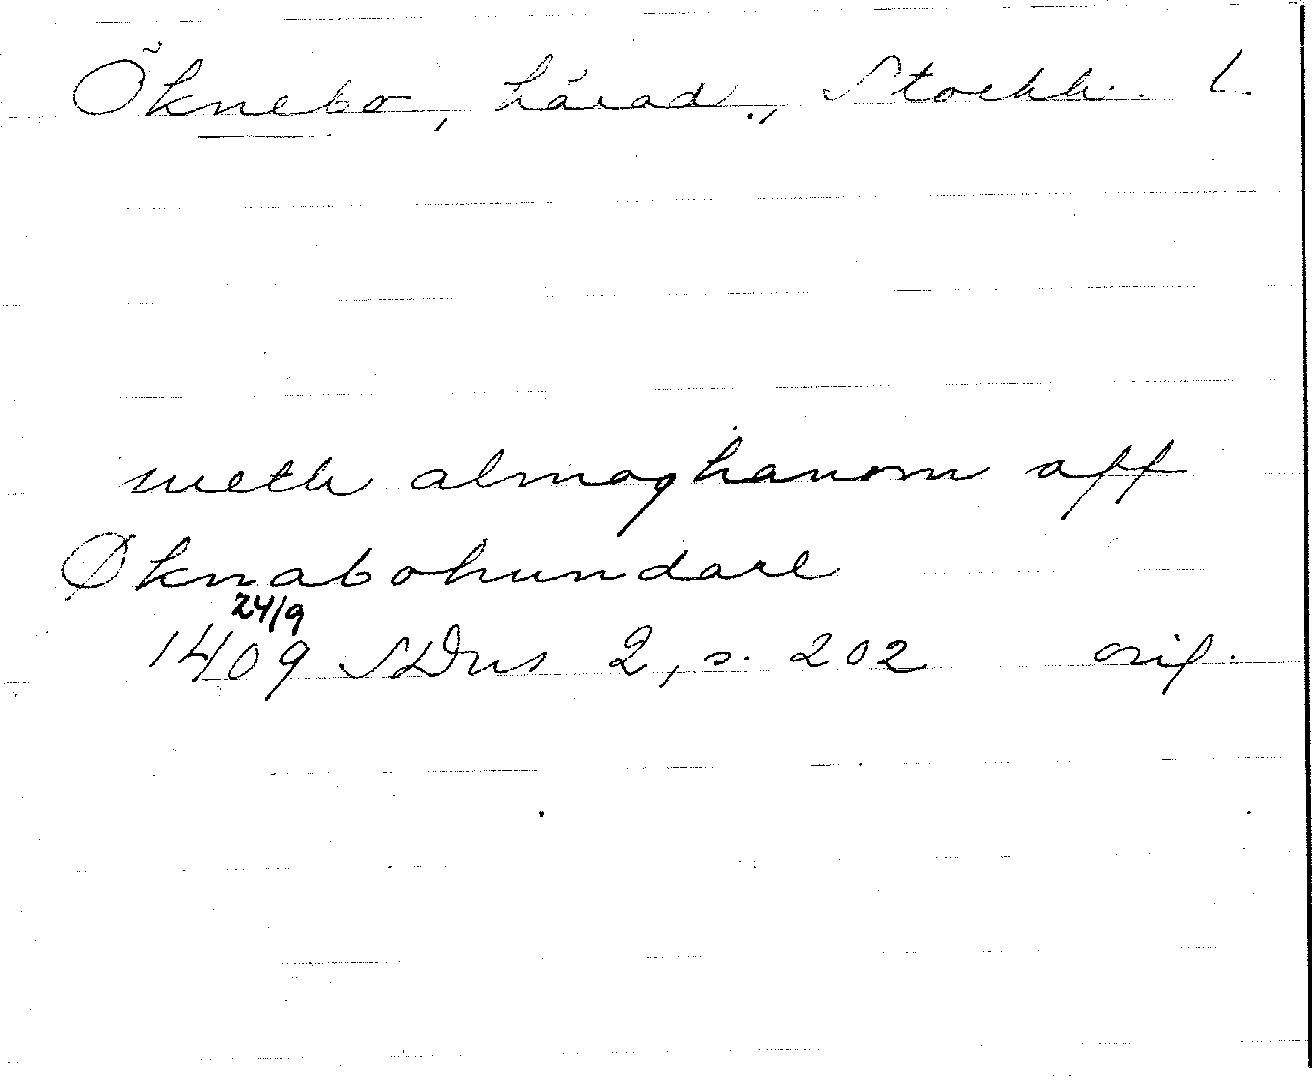 Öknebo, härad., Stockh. l.
meth almoghanom aff
Øknabohundare
24/9
1409 SDns 2, s. 202 orig.